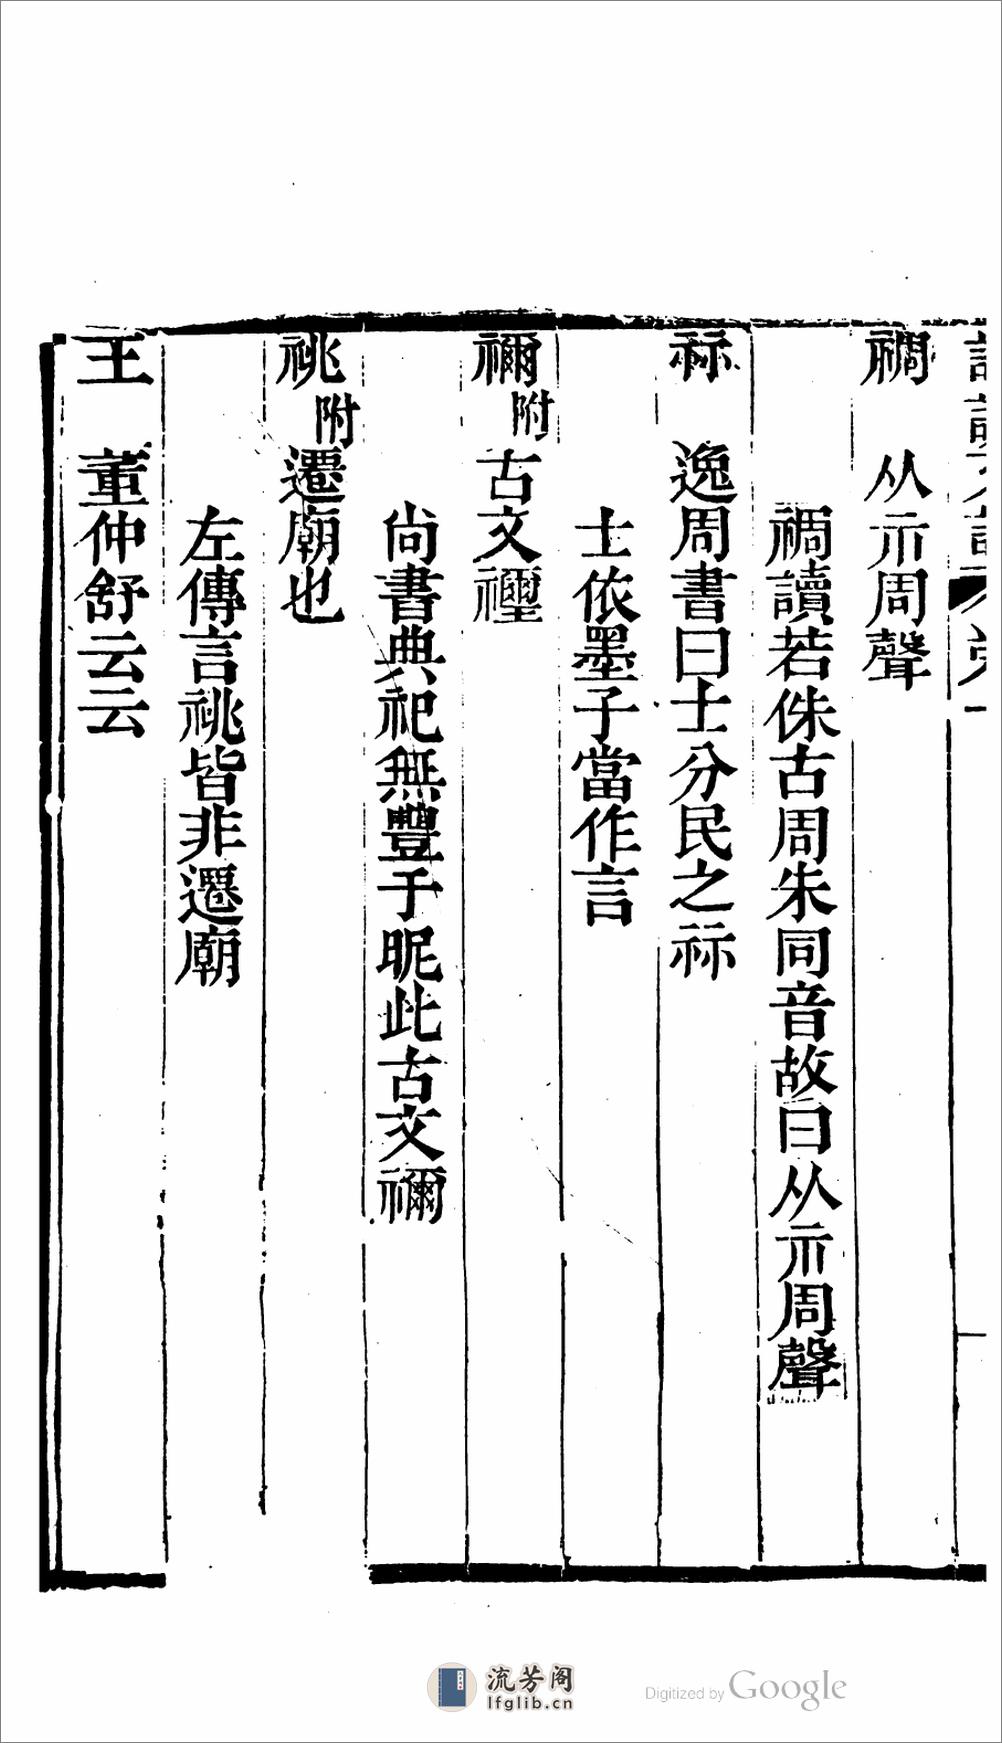 禂　从示周聲
禂讀若侏古周朱同音故曰从示周聲
祘　逸周書曰士分民之祘
士依墨子當作言
禰附古文𥜬
尚書典祀無豐于昵此古文禰
祧附遷廟也
左傳言祧皆非遷廟
王　董仲舒云云
流芳阁
lfglib.cn
Digitized by Google